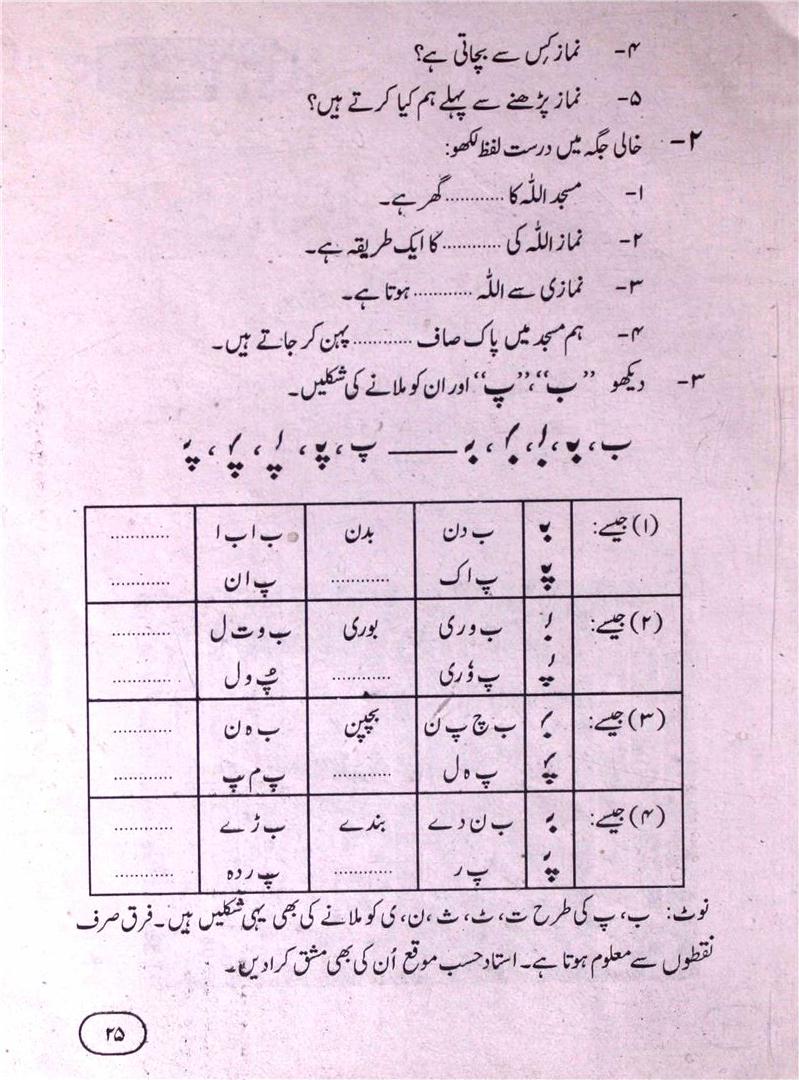 ۴- نماز کِس سے بچاتی ہے؟
۵- نماز پڑھنے سے پہلے ہم کیا کرتے ہیں؟
۲- خالی جگہ میں درست لفظ لکھو:
۱- مسجد اللّٰہ کا ............ گھر ہے۔
۲- نماز اللّٰہ کی ............ کا ایک طریقہ ہے۔
۳- نمازی سے اللّٰہ ............ ہوتا ہے۔
۴- ہم مسجد میں پاک صاف ............ پہن کر جاتے ہیں۔
۳- دیکھو ”ب“، ”پ“ اور ان کو ملانے کی شکلیں۔
ب، بـ، بـ، بـ، بـ ــــــ پ، پـ، پـ، پـ، پـ
(۱) جیسے: بـ ب د ن بدن ب ا ب ا ............
پـ پ ا ک ............ پ ا ن ............
(۲) جیسے: بـ ب و ر ی بوری ب و ت ل ............
پـ پ وٗ ر ی ............ پُ و ل ............
(۳) جیسے: بـ ب چ پ ن بچپن ب ہ ن ............
پـ پ ہ ل ............ پ م پ ............
(۴) جیسے: بـ ب ن د ے بندے ب ڑ ے ............
پـ پ ر ............ پ ر د ہ ............
نوٹ: ب، پ کی طرح ت، ٹ، ث، ن، ی کو ملانے کی بھی یہی شکلیں ہیں۔ فرق صرف
نقطوں سے معلوم ہوتا ہے۔ استاد حسب موقع اُن کی بھی مشق کرادیں۔
۲۵